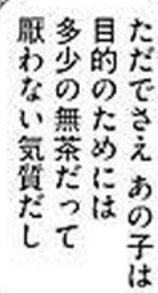 ただでさえ あの子は
目的のためには
多少の無茶だって
厭わない気質だし